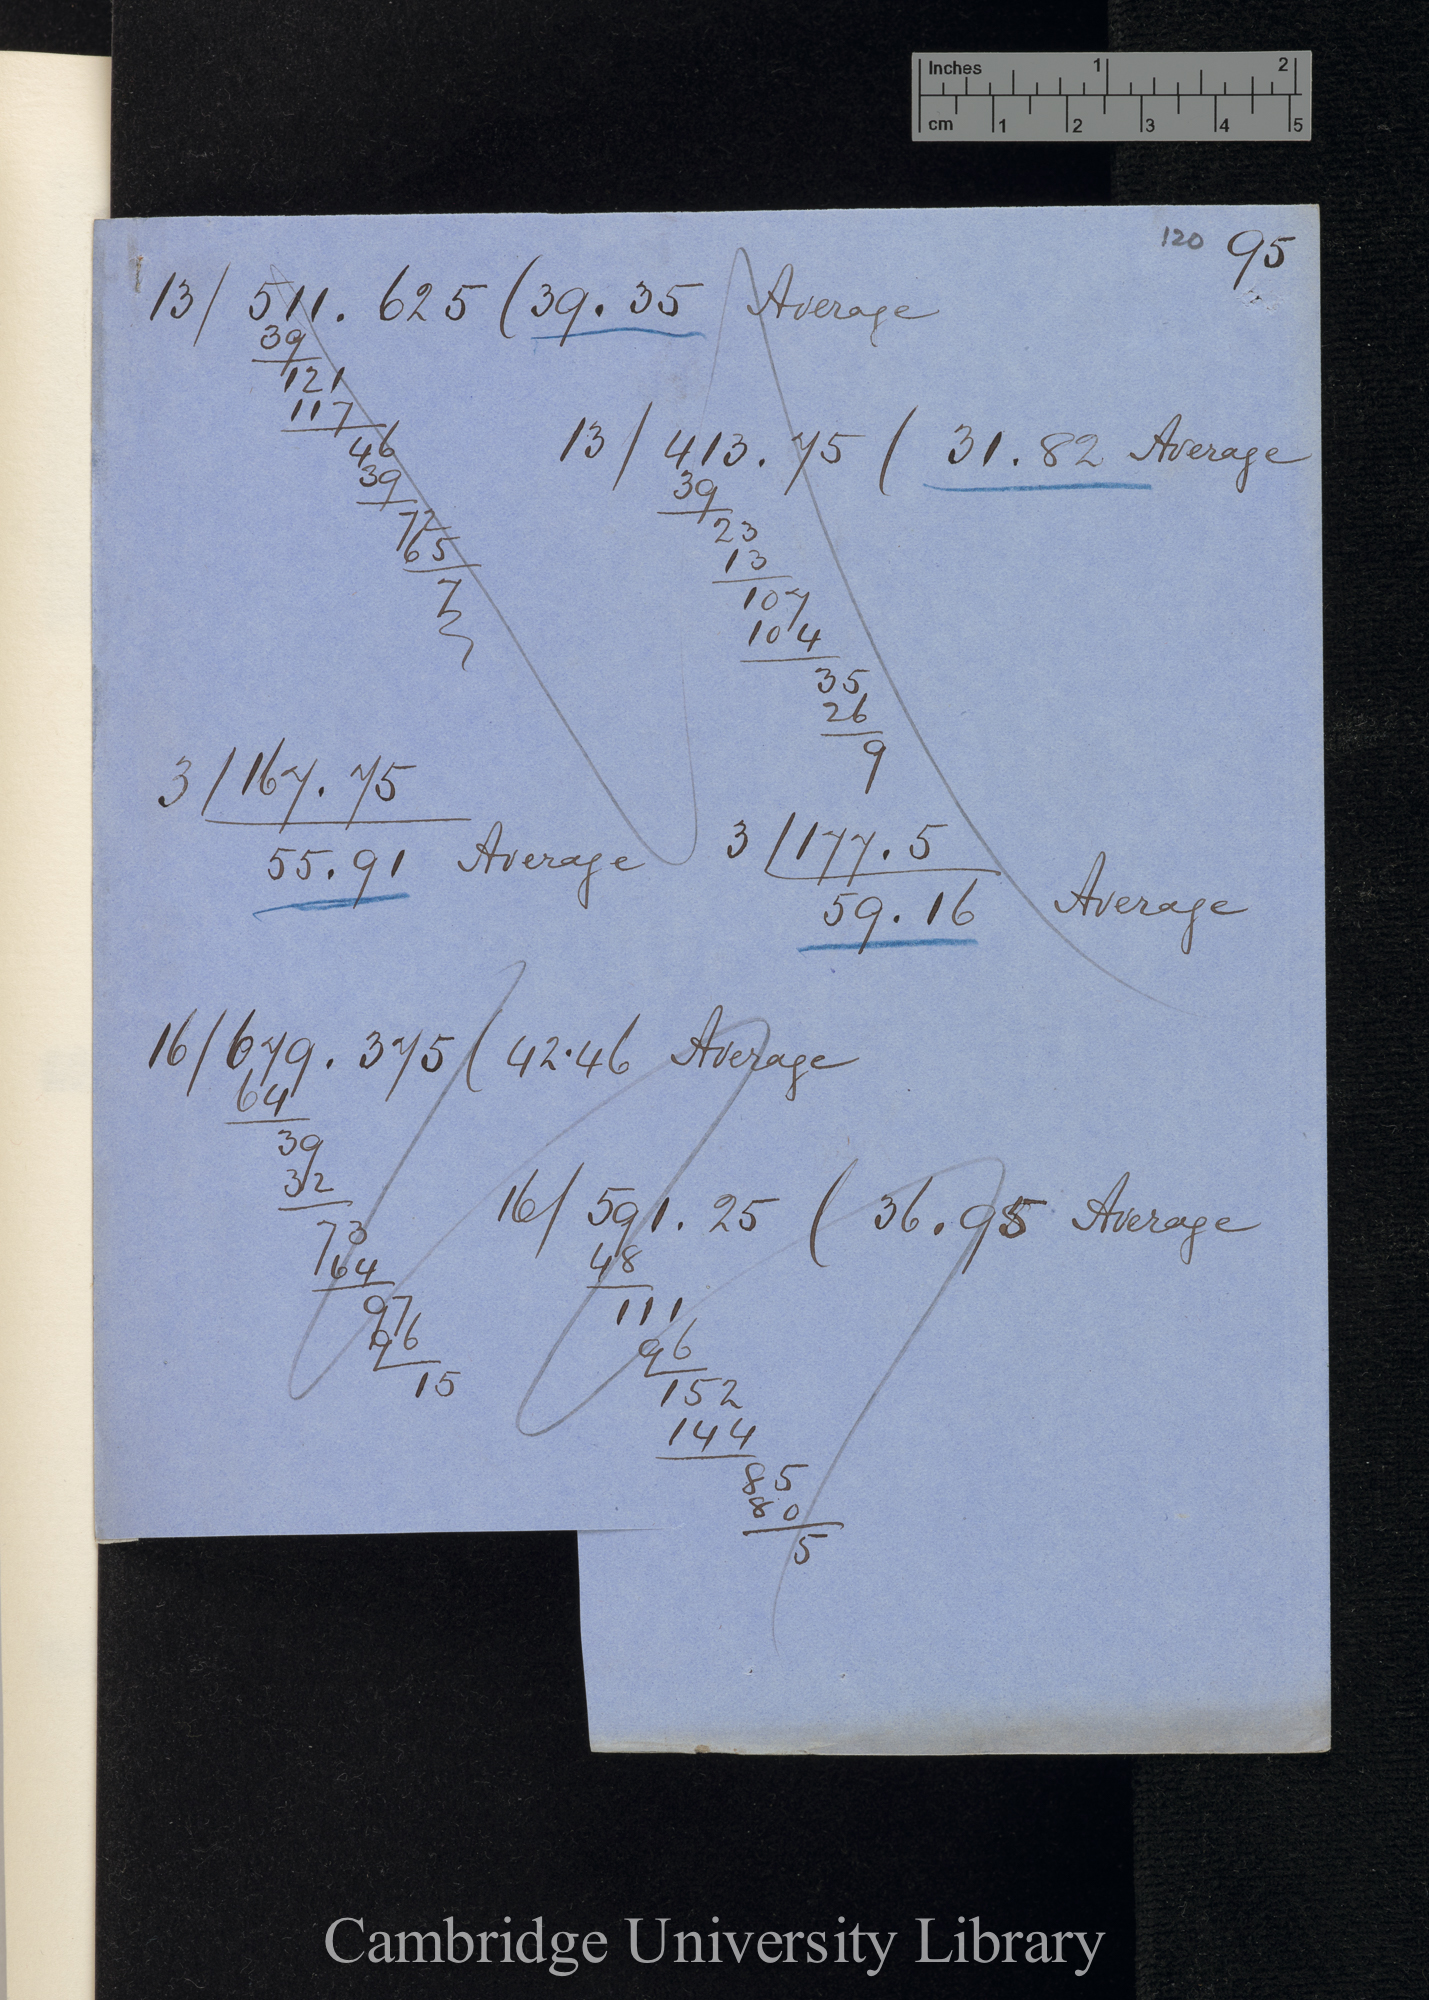 Inches 1 2
cm 1 2 3 4 5
120 95
13/ 511.625 (39.35 Average
39
121
117
46
39
72
65
7
13/ 413.75 ( 31.82 Average
39
23
13
107
104
35
26
9
3/167.75
55.91 Average
3/177.5
59.16 Average
16/679.375 (42.46 Average
64
39
32
73
64
97
96
15
16/ 591.25 ( 36.95 Average
48
111
96
152
144
85
80
5
Cambridge University Library